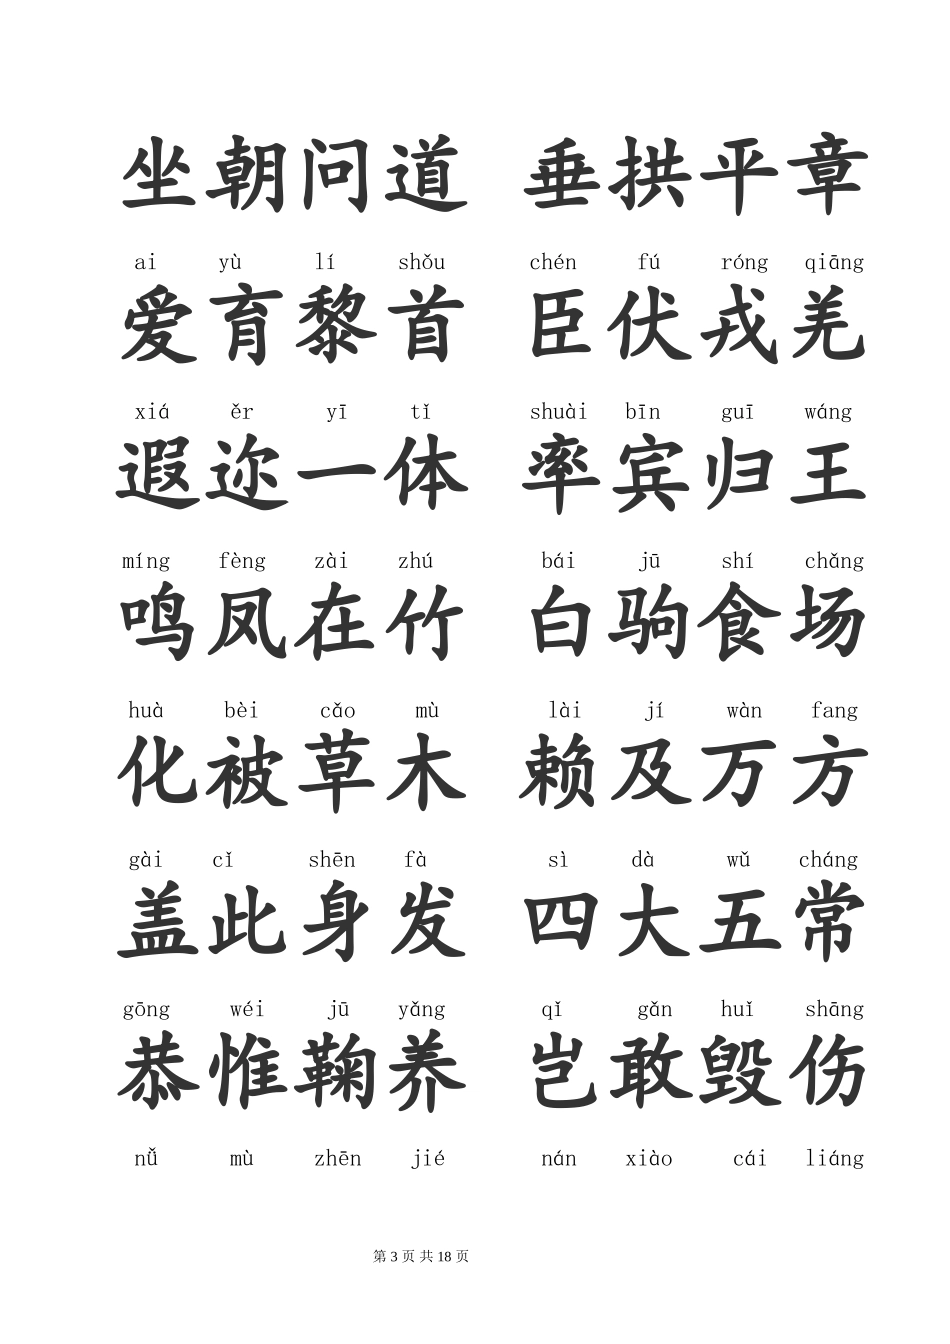 坐朝问道 垂拱平章
ai yù lí shǒu chén fú róng qiāng
爱育黎首 臣伏戎羌
xiá ěr yī tǐ shuài bīn guī wáng
遐迩一体 率宾归王
míng fèng zài zhú bái jū shí chǎng
鸣凤在竹 白驹食场
huà bèi cǎo mù lài jí wàn fang
化被草木 赖及万方
gài cǐ shēn fà sì dà wǔ cháng
盖此身发 四大五常
gōng wéi jū yǎng qǐ gǎn huǐ shāng
恭惟鞠养 岂敢毁伤
nǚ mù zhēn jié nán xiào cái liáng
第 3 页 共 18 页